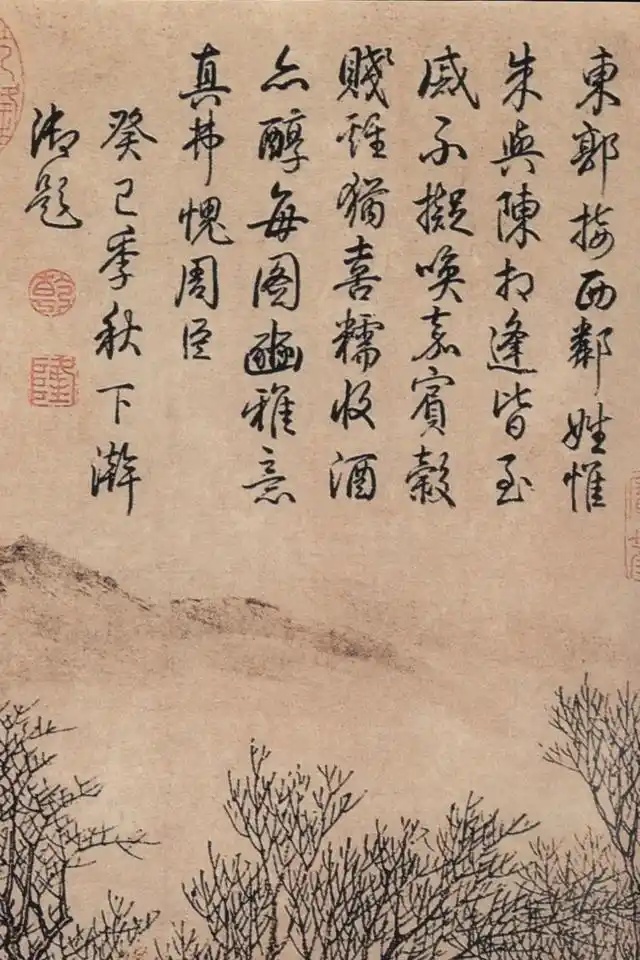 東郭接西鄰姓惟
朱與陳相逢皆至
戚不擬喚嘉賓穀
賤雖猶喜糯收酒
亦醇每圖豳雅意
真弗愧周臣
癸巳季秋下澣
御題
乾
隆